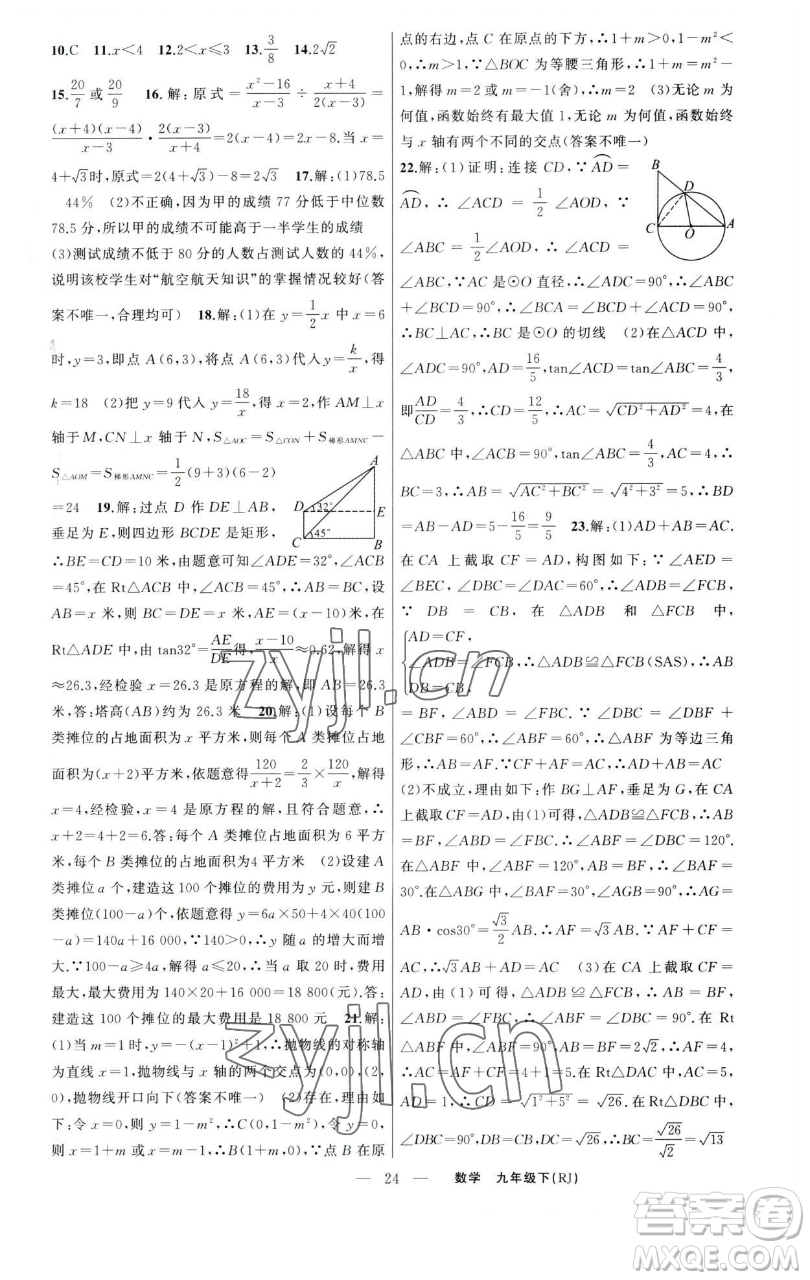 10.C 11.x<4 12.2<x≤3 13.3/8 14.2√2
15.20/7或20/9 16.解：原式=(x²-16)/(x-3)÷(x+4)/(2(x-3))=
(x+4)(x-4)/(x-3)·2(x-3)/(x+4)=2(x-4)=2x-8.当 x=
4+√3时，原式=2(4+√3)-8=2√3 17.解：(1)78.5
44% (2)不正确，因为甲的成绩 77 分低于中位数
78.5 分，所以甲的成绩不可能高于一半学生的成绩
(3)测试成绩不低于 80 分的人数占测试人数的 44%，
说明该校学生对“航空航天知识”的掌握情况较好(答
案不唯一，合理均可) 18.解：(1)在 y=1/2x 中 x=6
时，y=3，即点 A(6,3)，将点 A(6,3)代入 y=k/x，得
k=18 (2)把 y=9 代入 y=18/x，得 x=2，作 AM⊥x
轴于 M，CN⊥x 轴于 N，S△AOC=S△CON+S梯形AMNC-
S△AOM=S梯形AMNC=1/2(9+3)(6-2)
=24 19.解：过点 D 作 DE⊥AB，
垂足为 E，则四边形 BCDE 是矩形，
A
D
32°
E
C
45°
B
∴BE=CD=10 米，由题意可知∠ADE=32°，∠ACB
=45°，在 Rt△ACB 中，∠ACB=45°，∴AB=BC，设
AB=x 米，则 BC=DE=x 米，AE=(x-10)米，在
Rt△ADE 中，由 tan32°=AE/DE得，(x-10)/x≈0.62，解得 x
≈26.3，经检验 x=26.3 是原方程的解，即 AB=26.3
米，答：塔高(AB)约为 26.3 米 20.解：(1)设每个 B
类摊位的占地面积为 x 平方米，则每个 A 类摊位占地
面积为(x+2)平方米，120/(x+2)=2/3×120/x，解得
x=4，经检验，x=4 是原方程的解，且符合题意，∴
x+2=4+2=6.答：每个 A 类摊位占地面积为 6 平方
米，每个 B 类摊位的占地面积为4 平方米 (2)设建 A
类摊位 a 个，建造这 100 个摊位的费用为 y 元，则建 B
类摊位(100-a)个，可得 y=6a×50+4×40(100
-a)=140a+16 000，∵140>0，∴y 随 a 的增大而增
大.故 a 取 20 时，费用最大，此时 y
大，最大费用为 140×20+16 000=18 800(元).答：
建造这 100 个摊位的最大费用是 18 800 元 21.解：
(1)当 m=1 时，y=-(x-1)²+1，∴抛物线的对称轴
为直线 x=1，抛物线与 x 轴的两个交点为(0,0)，(2,0)，
抛物线开口向下(答案不唯一) (2)存在，理由如
下：令 x=0，则 y=1-m²，∴C(0,1-m²)，令 y=0，
则 x=1+m 或 x=m-1，∵点 B 在原
点的右边，点 C 在原点的下方，∴1+m>0,1-m²
<0，∴m>1，∵△BOC 为等腰三角形，∴1+m=m²
-1，解得 m=2 或 m=-1(舍)，∴m=2 (3)无论 m 为
何值，函数始终有最大值 1，无论 m 为何值，函数始终
与 x 轴有两个不同的交点(答案不唯一)
22.解：(1)证明：连接 CD，∵AD=
AD，∴∠ACD=1/2∠AOD，∵
∠ABC=1/2∠AOD，∴∠ACD=
B
D
C
O
A
∠ABC，∵AC 是⊙O 直径，∴∠ADC=90°，∴∠ABC
+∠BCD=90°，∴∠ACD+∠BCD=∠ACB=90°，
∴BC⊥AC，∴BC 是⊙O 的切线 (2)在△ACD 中，
∠ADC=90°，AD=16/5，tan∠ACD=tan∠ABC=4/3，
即AD/CD=4/3，∴CD=12/5，∴AC=√(CD²+AD²)=4，在
△ABC 中，∠ACB=90°，tan∠ABC=4/3，AC=4，∴
BC=3，∴AB=√(AC²+BC²)=√(4²+3²)=5，∴BD
=AB-AD=5-16/5=9/5 23.解：(1)AD+AB=AC.
在 CA 上截取 CF=AD，构图如下：∵∠AED=
∠BEC，∠DBC=∠DAC=60°，∴∠ADB=∠FCB，
∵DB=CB，在△ADB和△FCB中，
{AD=CF，
∠ADB=∠FCB，∴△ADB≌△FCB(SAS)，∴AB
=BF，∠ABD=∠FBC，∵∠DBC=∠DBF+
∠FBC=60°，∴∠ABF=60°，∴△ABF 为等边三角
形，∴AB=AF，∵AF+CF=AC，∴AD+AB=AC
(2)不成立，理由如下：作 BG⊥AF，垂足为 G，在 CA
上截取 CF=AD，由(1)可得，△ADB≌△FCB，∴AB
=BF，∠ABD=∠FBC，∴∠ABF=∠DBC=120°.
在△ABF 中，∠ABF=120°，AB=BF，∴∠BAF=
30°，在△ABG 中，∠BAF=30°，∠AGB=90°，∴AG=
AB·cos30°=√3/2AB.∴AF=√3AB，∵AF+CF=
AC，∴√3AB+AD=AC (3)在 CA 上截取 CF=
AD，由(1)可得，△ADB≌△FCB，∴AB=BF，∠ABD
=∠FBC，∴∠ABF=∠DBC=90°.在 Rt△ABF 中，
∠ABF=90°，AB=BF=2√2，∴AF=4，∵CF=AD=
AD=1，∴CD=√(1²+5²)=√26，在 Rt△DBC 中，
∠DBC=90°，DB=BC，DC=√26，∴BC=√26/√2=√13
— 24 — 数学 九年级下(RJ)
zyjl.cn
zyjl.cn
答案卷
MXQE.COM